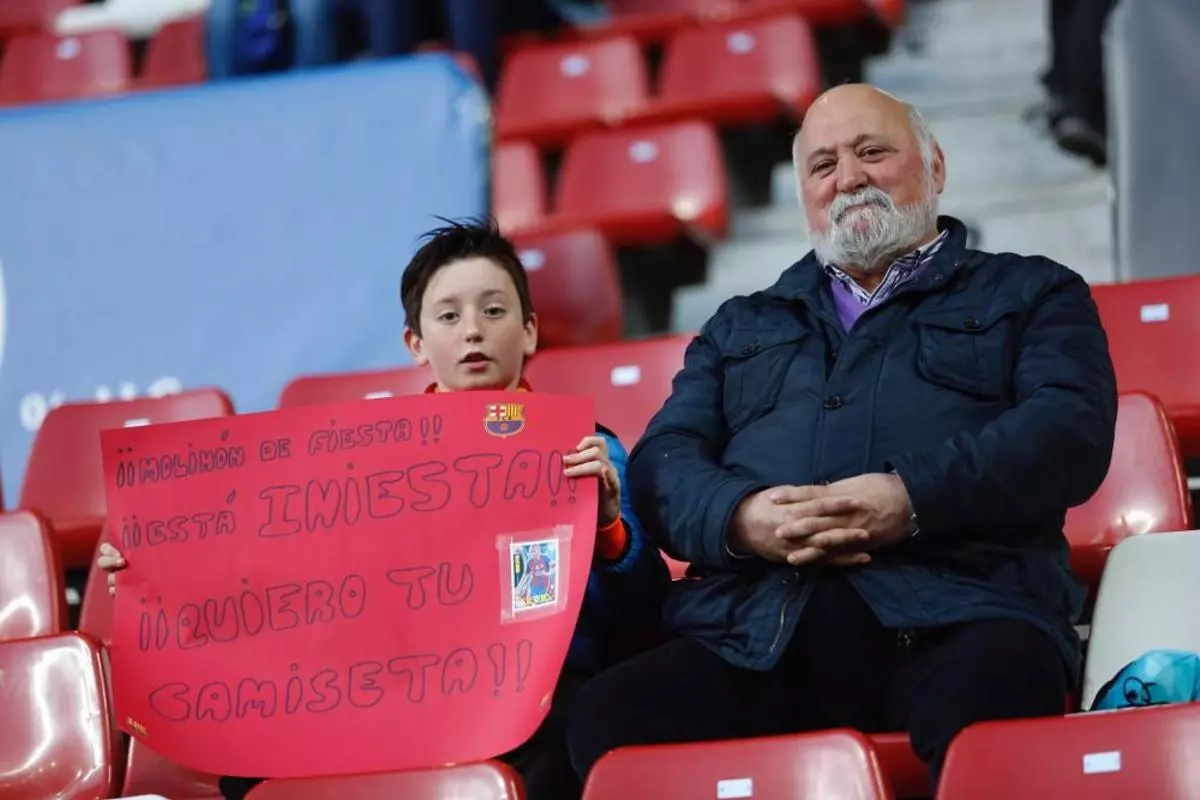 ¡¡MOLINÓN DE FIESTA!!
¡¡ESTÁ INIESTA!!
¡¡QUIERO TU
CAMISETA!!